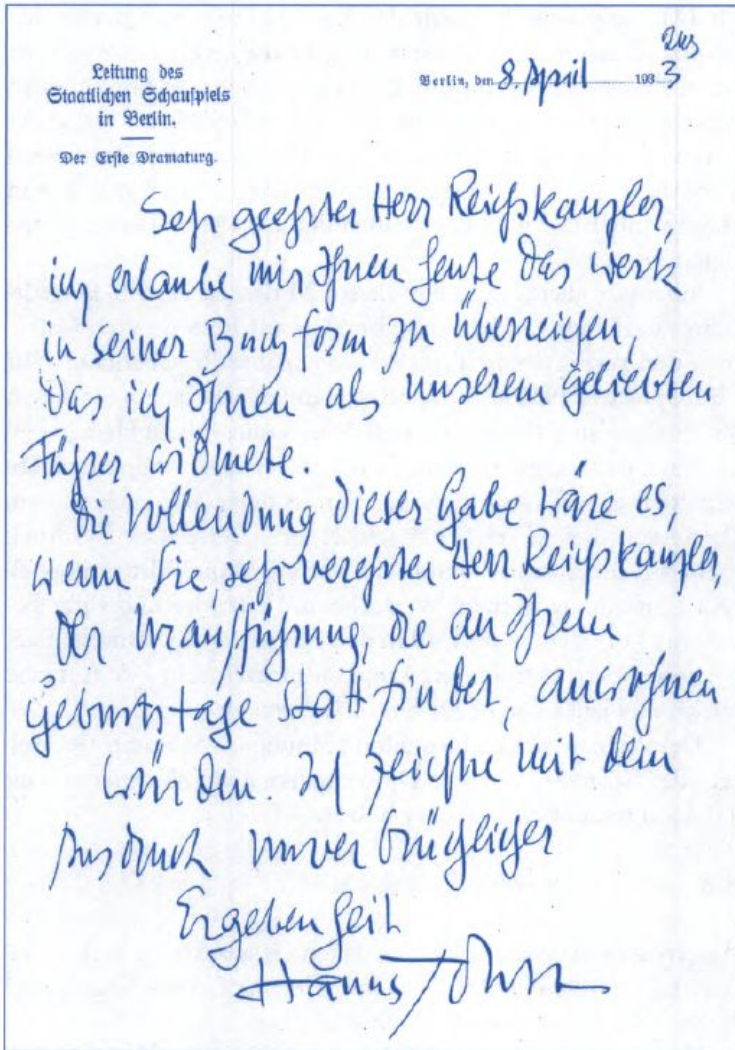 Leitung des
Staatlichen Schauspiels
in Berlin.
Der Erste Dramaturg.
Berlin, den 8. April 1933
Sehr geehrter Herr Reichskanzler,
ich erlaube mir Ihnen heute das Werk
in seiner Buchform zu überreichen,
das ich Ihnen als unserem geliebten
Führer widmete.
Die Vollendung dieser Gabe wäre es,
wenn Sie, sehr verehrter Herr Reichskanzler,
der Uraufführung, die an Ihrem
Geburtstage statt findet anwohnen
würden. Ich zeichne mit dem
Ausdruck unverbrüchlicher
Ergebenheit
Hanns Johst